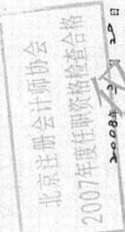 北京注册会计师协会
2007年度任职资格检查合格
2008年 2月20日